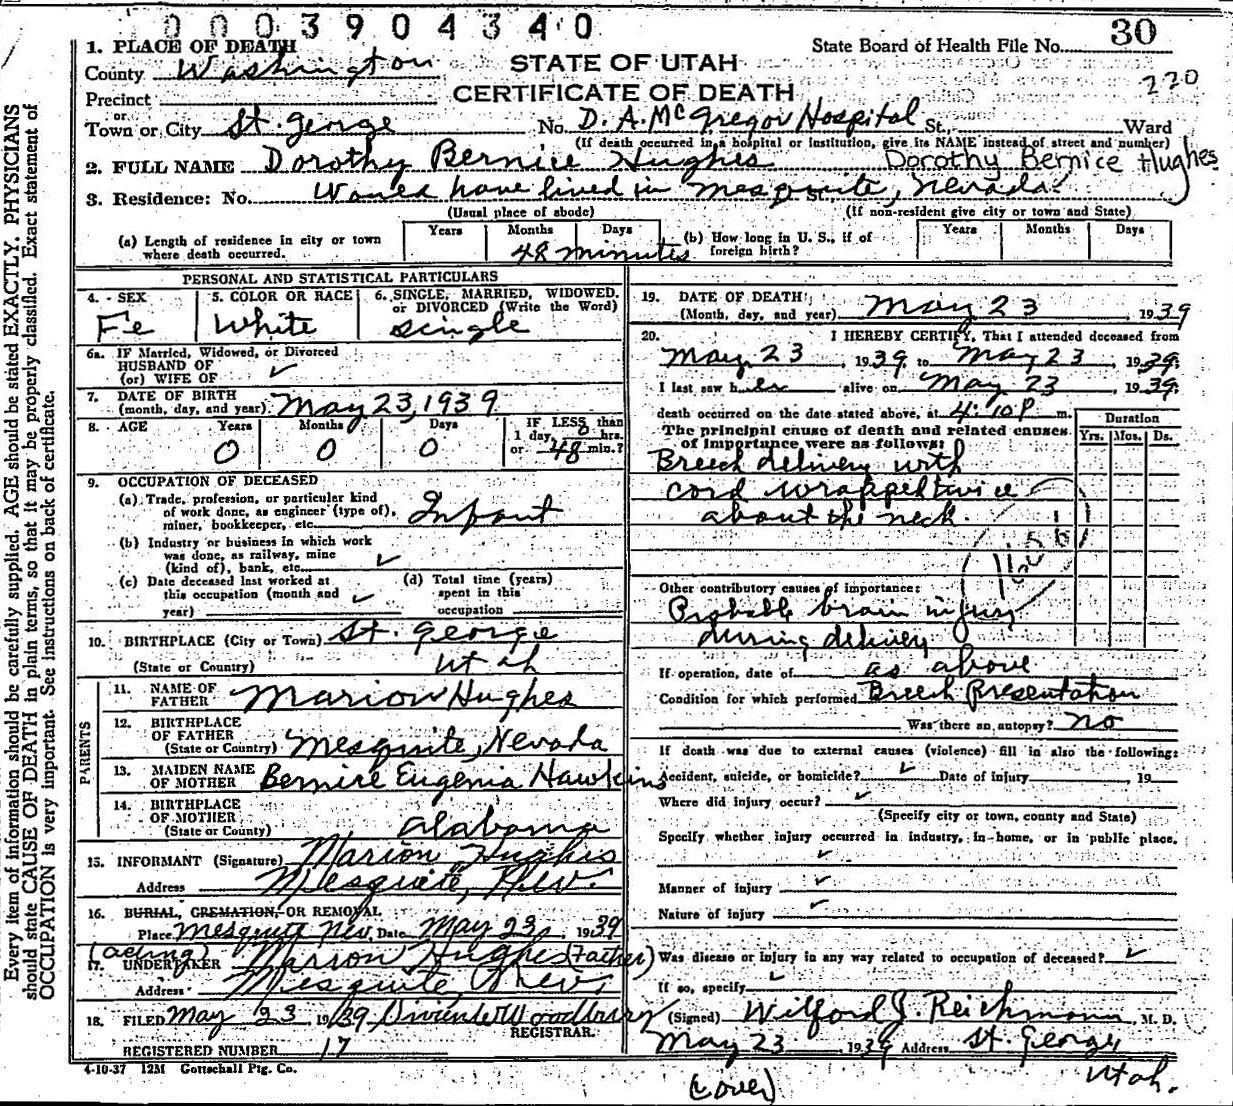 0003904340
State Board of Health File No. 30
220
1. PLACE OF DEATH
County Washington
STATE OF UTAH
CERTIFICATE OF DEATH
Precinct
or
Town or City St. George No. D. A. McGregor Hospital St., Ward
(If death occurred in a hospital or institution, give its NAME instead of street and number)
2. FULL NAME Dorothy Bernice Hughes Dorothy Bernice Hughes
3. Residence: No. Would have lived in Mesquite, Nevada. St.,
(Usual place of abode) (If non-resident give city or town and State)
(a) Length of residence in city or town where death occurred. Years Months Days 48 minutes
(b) How long in U. S., if of foreign birth? Years Months Days
PERSONAL AND STATISTICAL PARTICULARS
4. - SEX Fe
5. COLOR OR RACE White
6. SINGLE, MARRIED, WIDOWED, or DIVORCED (Write the Word) single
6a. IF Married, Widowed, or Divorced
HUSBAND OF
(or) WIFE OF ✓
7. DATE OF BIRTH
(month, day, and year) May 23, 1939
8. AGE Years 0 Months 0 Days 0 IF LESS than 1 day 0 hrs. or 48 min.?
9. OCCUPATION OF DECEASED
(a) Trade, profession, or particular kind
of work done, as engineer (type of),
miner, bookkeeper, etc. Infant
(b) Industry or business in which work
was done, as railway, mine
(kind of), bank, etc. ✓
(c) Date deceased last worked at
this occupation (month and
year) ✓
(d) Total time (years)
spent in this
occupation
10. BIRTHPLACE (City or Town) St. George
(State or Country) Utah
PARENTS
11. NAME OF FATHER Marion Hughes
12. BIRTHPLACE OF FATHER
(State or Country) Mesquite, Nevada
13. MAIDEN NAME OF MOTHER Bernice Eugenia Hawkins
14. BIRTHPLACE OF MOTHER
(State or County) Alabama
15. INFORMANT (Signature) Marion Hughes
Address Mesquite, Nev.
16. BURIAL, CREMATION, OR REMOVAL
Place Mesquite Nev. Date May 23, 1939
(acting)
17. UNDERTAKER Marion Hughes (Father)
Address Mesquite, Nev.
18. FILED May 23 1939 Woodbury
REGISTRAR.
REGISTERED NUMBER 17
4-10-37 12M Gottschall Ptg. Co.
19. DATE OF DEATH:
(Month, day, and year) May 23, 1939
20. I HEREBY CERTIFY, That I attended deceased from
May 23, 1939, to May 23, 1939.
I last saw her alive on May 23, 1939.
death occurred on the date stated above, at 4:10 P m.
The principal cause of death and related causes
of importance were as follows:
Duration
Yrs. Mos. Ds.
Breech delivery with
cord wrapped twice
about the neck.
Other contributory causes of importance:
Probable brain injury
during delivery
If operation, date of as above
Condition for which performed Breech Presentation
Was there an autopsy? no
If death was due to external causes (violence) fill in also the following:
Accident, suicide, or homicide? ✓ Date of injury , 19
Where did injury occur? ✓
(Specify city or town, county and State)
Specify whether injury occurred in industry, in-home, or in public place.
✓
Manner of injury ✓
Nature of injury ✓
Was disease or injury in any way related to occupation of deceased? ✓
If so, specify ✓
(Signed) Wilford J. Reichmann, M. D.
May 23 1939 Address St. George
Utah.
(over)
Every item of information should be carefully supplied. AGE should be stated EXACTLY. PHYSICIANS
should state CAUSE OF DEATH in plain terms, so that it may be properly classified. Exact statement of
OCCUPATION is very important. See instructions on back of certificate.